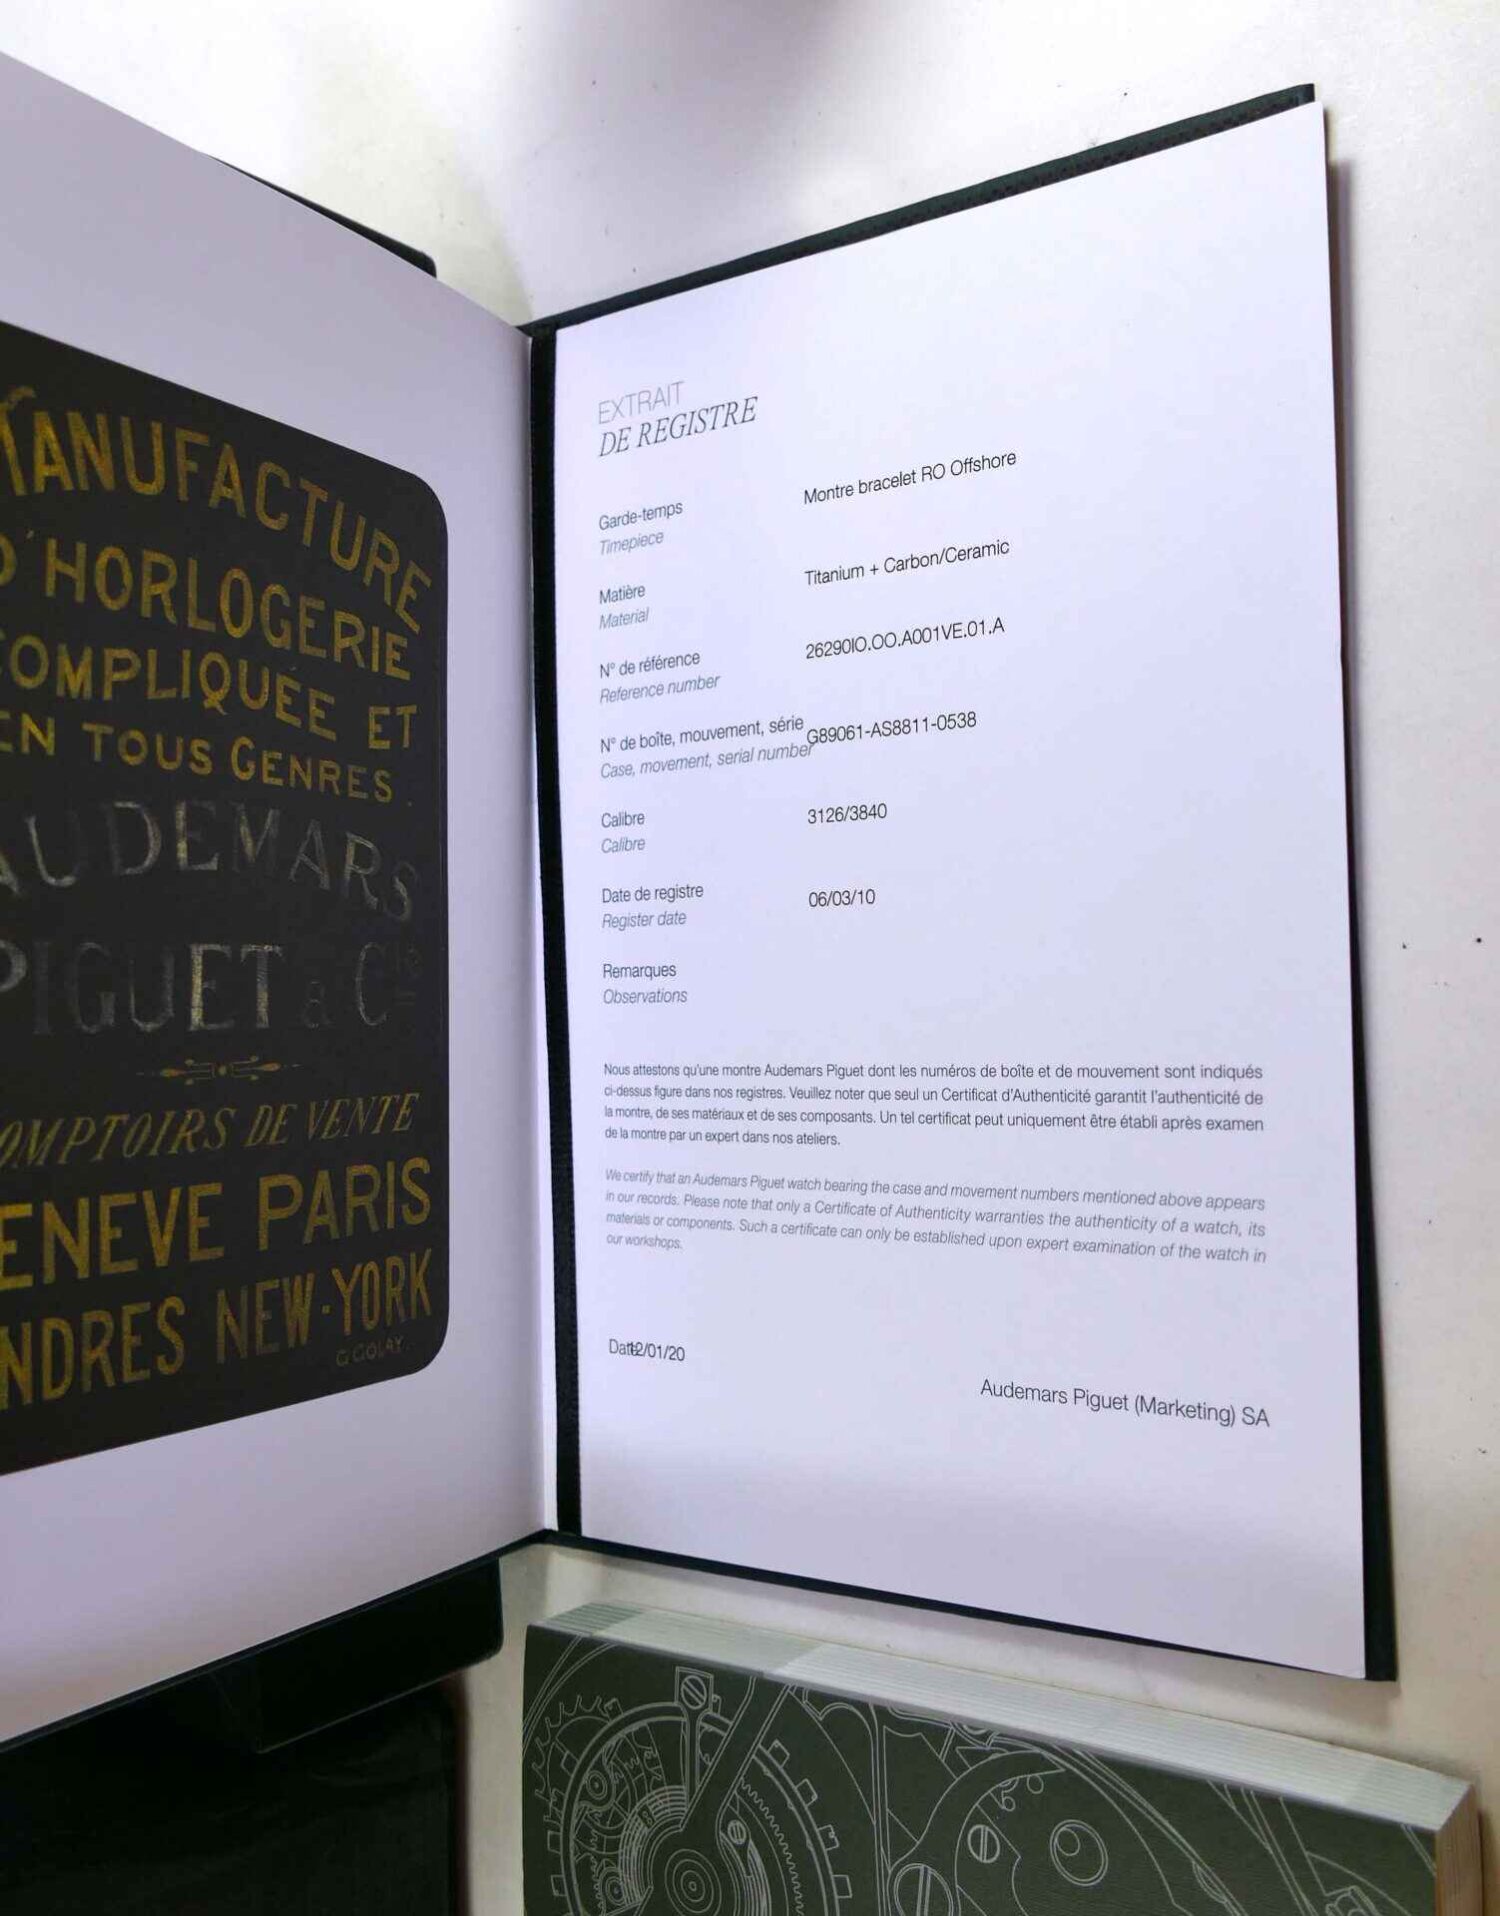 MANUFACTURE
D'HORLOGERIE
COMPLIQUÉE ET
EN TOUS GENRES.
AUDEMARS
PIGUET & Cie
COMPTOIRS DE VENTE
ENEVE PARIS
NDRES NEW-YORK
G GOLAY.
EXTRAIT
DE REGISTRE
Garde-temps Montre bracelet RO Offshore
Timepiece
Matière Titanium + Carbon/Ceramic
Material
N° de référence 26290IO.OO.A001VE.01.A
Reference number
N° de boîte, mouvement, série G89061-AS8811-0538
Case, movement, serial number
Calibre 3126/3840
Calibre
Date de registre 06/03/10
Register date
Remarques
Observations
Nous attestons qu'une montre Audemars Piguet dont les numéros de boîte et de mouvement sont indiqués
ci-dessus figure dans nos registres. Veuillez noter que seul un Certificat d'Authenticité garantit l'authenticité de
la montre, de ses matériaux et de ses composants. Un tel certificat peut uniquement être établi après examen
de la montre par un expert dans nos ateliers.
We certify that an Audemars Piguet watch bearing the case and movement numbers mentioned above appears
in our records. Please note that only a Certificate of Authenticity warranties the authenticity of a watch, its
materials or components. Such a certificate can only be established upon expert examination of the watch in
our workshops.
Date 12/01/20
Audemars Piguet (Marketing) SA